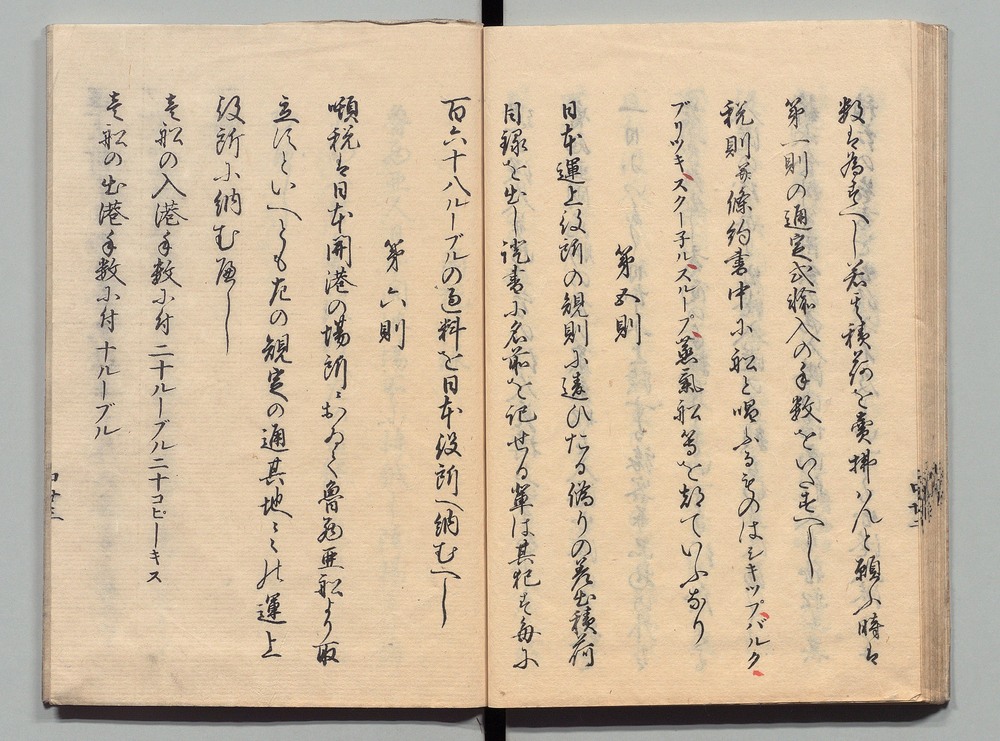 数は為すへし若其積荷を売捌かんと願ふ時は
第一則の通定式船入の手数をいたすへし
税則並條約書中に船と唱ふるものはシキップ、バルク、
ブリッキ、スクー子ル、スループ、蒸氣船等を都ていふなり
第五則
日本運上役所の規則に違ひたる偽りの差出積荷
目録を出し証書に名前を記せる輩は其犯す毎に
百六十八ルーブルの過料を日本役所へ納むへし
第六則
頓税は日本開港の場所におゐて魯西亜船より取
立すといへとも左の規定の通其地々の運上
役所に納むへし
壱船の入港手数に付二十ルーブル二十コピーキス
壱船の出港手数に付十ルーブル